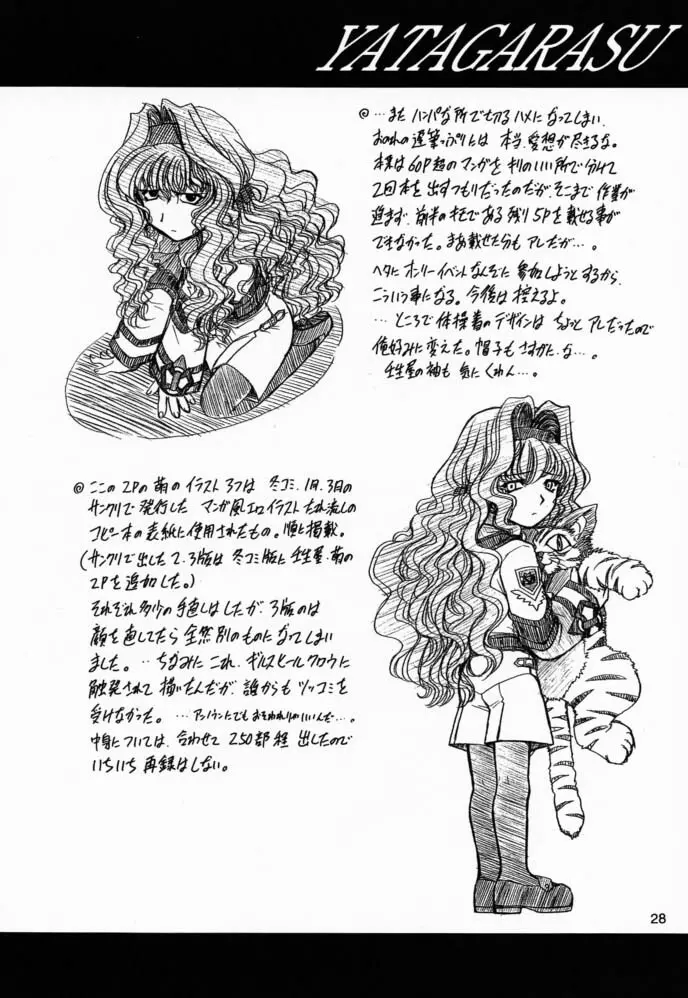 YATAGARASU
◎ …また ハンパな所で切るハメになってしまい、
おのれの遅筆っぷりには 本当、愛想が尽きるな。
本来は60P超のマンガを キリのいい所で分けて
2回本を出すつもりだったのだが、そこまで 作業が
進まず、前半のキモである残り5Pを載せる事が
できなかった。まあ載せた分も アレだが…。
ヘタに オンリーイベントなんぞに 参加しようとするから、
こういう事になる。今後は控えるよ。
… ところで 体操着のデザインは ちょっと アレだったので
俺好みに変えた。帽子も さすがに、な…。
壬生屋の袖も 気にくわん…。
◎ ここの 2Pの 萌の イラスト 3つは 冬コミ、1月、3月の
サンクリで 発行した マンガ風エロイラスト たれ流しの
コピー本の表紙に使用されたもの。順に掲載。
(サンクリで出した 2、3版は 冬コミ版に 壬生屋、萌の
2Pを追加した。)
それぞれ多少の手直しはしたが、3版のは
顔を直してたら 全然別のものになってしまい
ました。…ちなみに これ、ギルスヒールクロウに
触発されて 描いたんだが、誰からも ツッコミを
受けなかった。…アンノウンにでも おそわれりゃいいんだ…。
中身については、合わせて 250部程 出したので
いちいち 再録はしない。
28